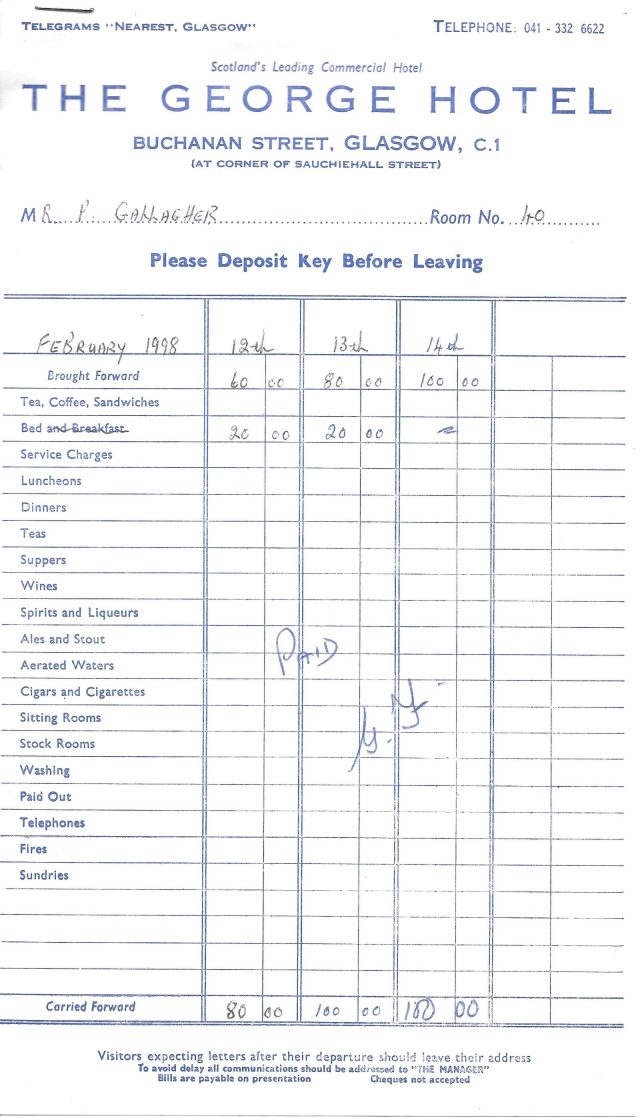 TELEGRAMS "NEAREST, GLASGOW" TELEPHONE: 041 - 332 6622
Scotland's Leading Commercial Hotel
THE GEORGE HOTEL
BUCHANAN STREET, GLASGOW, C.1
(AT CORNER OF SAUCHIEHALL STREET)
MR P. GALLAGHER Room No. 40
Please Deposit Key Before Leaving
FEBRUARY 1998 12th 13th 14th
Brought Forward 60 00 80 00 100 00
Tea, Coffee, Sandwiches
Bed and Breakfast 20 00 20 00
Service Charges
Luncheons
Dinners
Teas
Suppers
Wines
Spirits and Liqueurs
Ales and Stout
PAID
Aerated Waters
Cigars and Cigarettes
Sitting Rooms
Stock Rooms
Washing
Paid Out
Telephones
Fires
Sundries
Carried Forward 80 00 100 00 100 00
Visitors expecting letters after their departure should leave their address
To avoid delay all communications should be addressed to "THE MANAGER"
Bills are payable on presentation Cheques not accepted